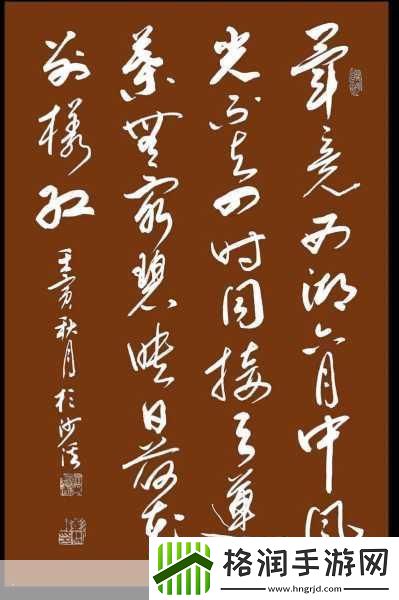 畢竟西湖六月中風
光不与四时同接天蓮
葉無窮碧映日荷花
别樣红
壬寅秋月於沙
格润手游网
www.hngrjd.com